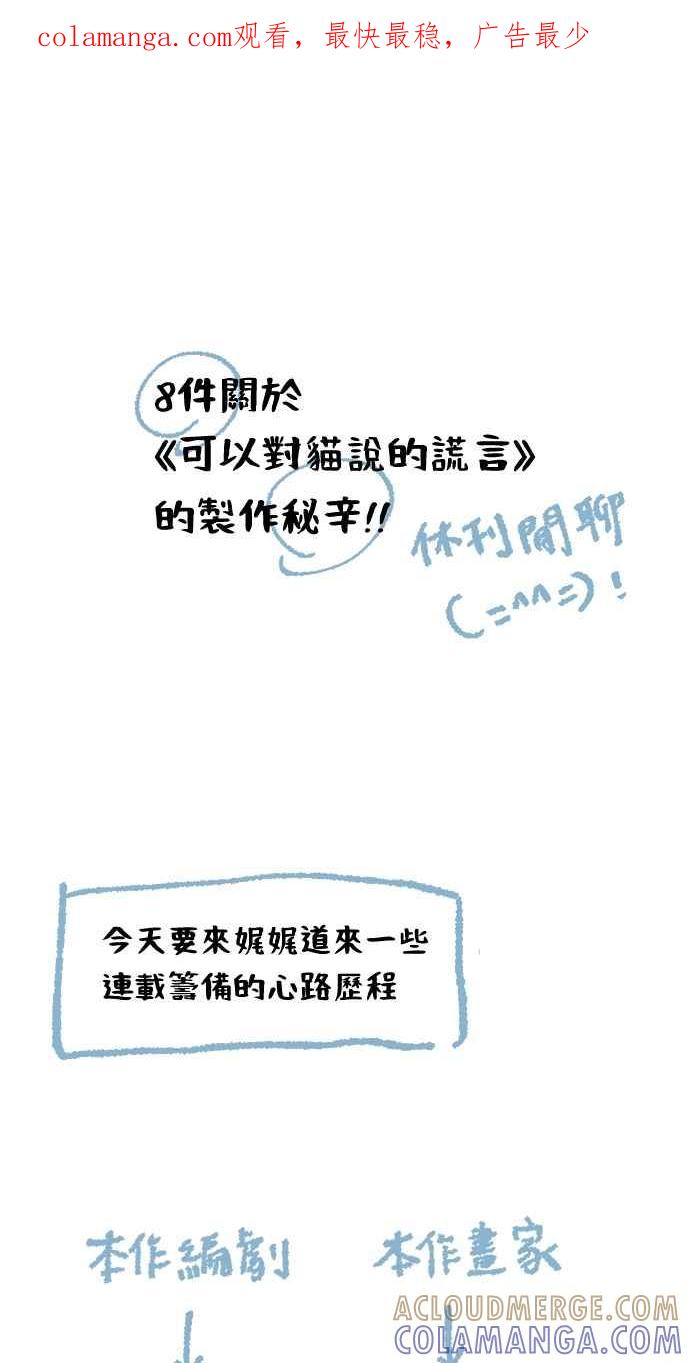 colamanga.com观看，最快最稳，广告最少
8件關於
《可以對貓說的謊言》
的製作秘辛!!
休刊閒聊
(=^^=)!
今天要來娓娓道來一些
連載籌備的心路歷程
本作編劇
本作畫家
ACLOUDMERGE.COM
COLAMANGA.COM